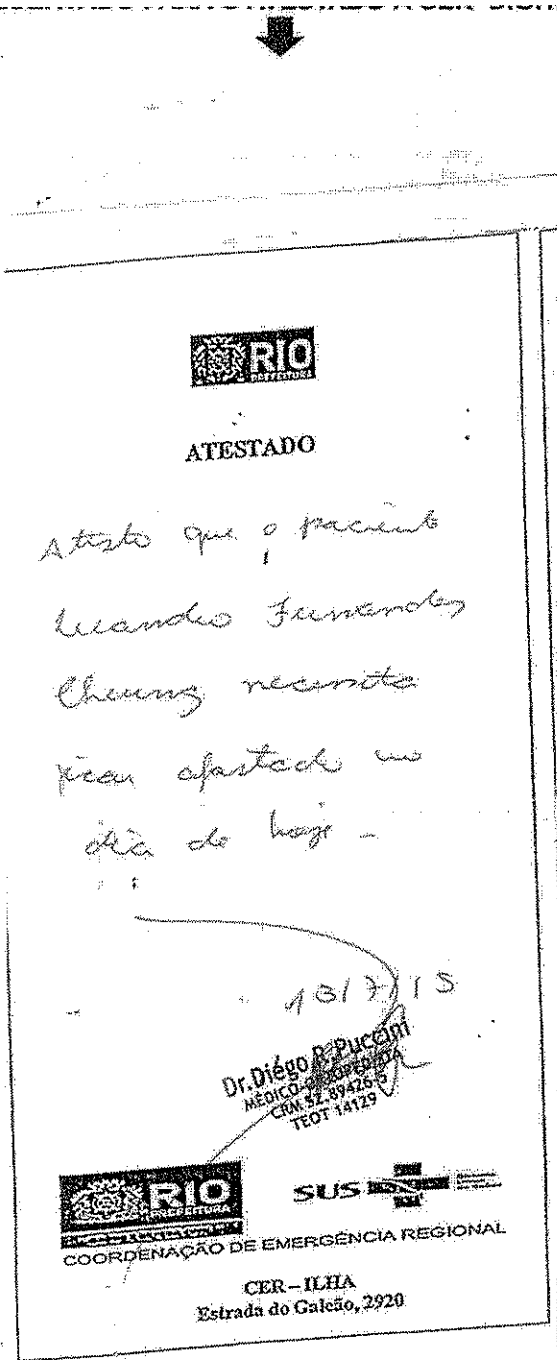 RIO
PREFEITURA
ATESTADO
Atesto que o paciente
Leandro Fernandes
Cheung necessita
ficar afastado no
dia de hoje -
13/7/15
Dr. Diégo R. Puccini
MÉDICO-ORTOPEDISTA
CRM 52.89426-5
TEOT 14129
RIO
PREFEITURA
SUS
COORDENAÇÃO DE EMERGÊNCIA REGIONAL
CER-ILHA
Estrada do Galeão, 2920